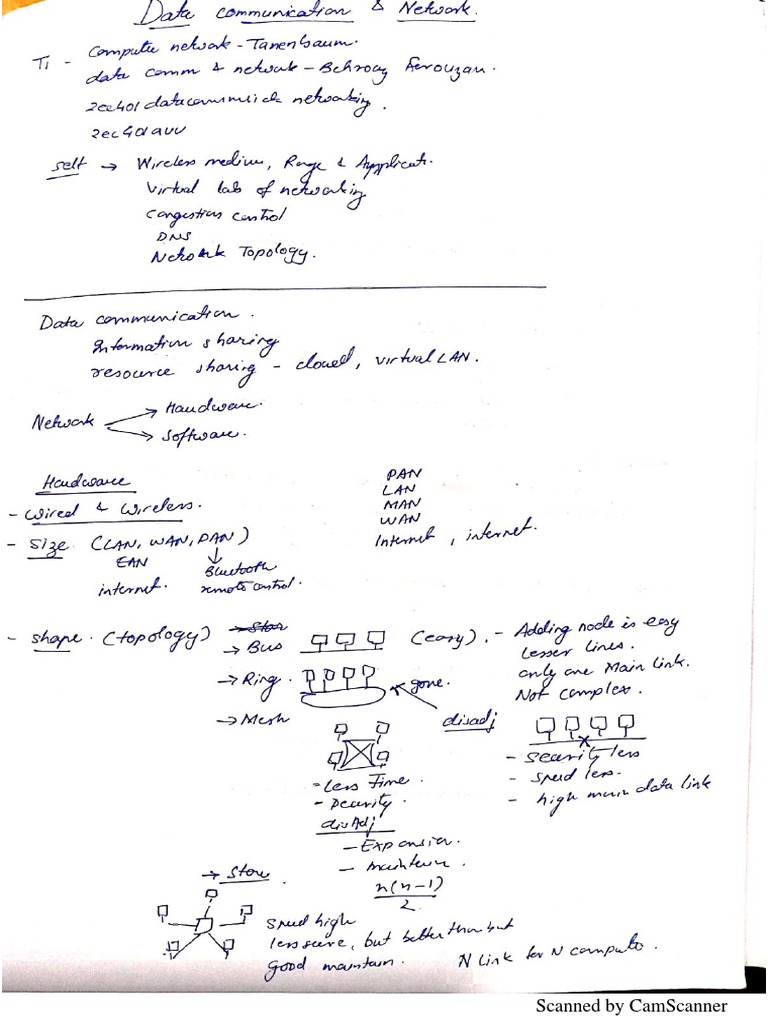 Data communication & Network.
T1 - Computer network - Tanenbaum.
data comm & network - Behrouz Ferouzan.
2ec401 datacommu networking.
2ec401
self → Wireless medium, Range & Applicat.
Virtual lab of networking
Congestion control
DNS
Network Topology.
Data communication.
Information sharing
resource sharing - cloued, virtual LAN.
Network → Hardware.
→ Software.
Hardware
- Wired & Wireless.
- Size (LAN, WAN, PAN)
EAN ↓ Bluetooth
internet. remote control.
PAN
LAN
MAN
WAN
Internet, internet.
- shape. (topology) Star
→ Bus (easy).
→ Ring. gone.
→ Mesh
- Adding node is easy
Lesser lines.
only one Main link.
Not complex.
disadj
- security less
- speed less.
- high main data link
- Less Time.
- security.
disAdj
- Expansion.
- maintain.
n(n-1)
2
→ Star.
Speed high
less secure, but better than but
good maintain.
N link for N computer.
Scanned by CamScanner